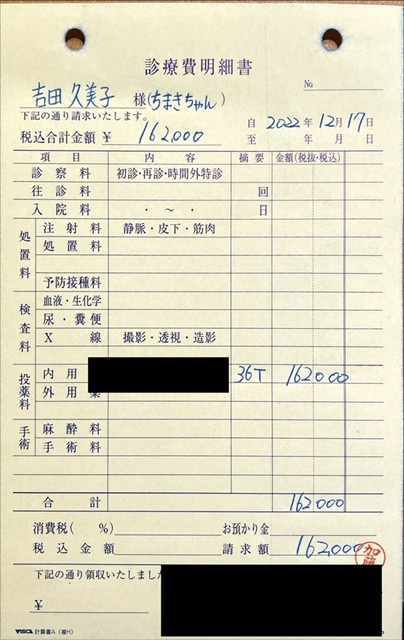 診療費明細書
№
吉田久美子 様(ちまきちゃん)
下記の通り請求いたします。
自 2022年 12月 17日
税込合計金額 ¥ 162,000
至 年 月 日
項目 内容 摘要 金額(税抜・税込)
診察料 初診・再診・時間外特診
往診料 回
入院料 ・ ~ ・ 日
処置料 注射料 静脈・皮下・筋肉
処置料
予防接種料
検査料 血液・生化学
尿・糞便
X線 撮影・透視・造影
投薬料 内用 36T 162000
外用薬
手術 麻酔料
手術料
合計 162000
消費税( %) お預かり金
税込金額 請求額 162000
加藤
下記の通り領収いたしました
¥
VISCA 計算書A(複H)